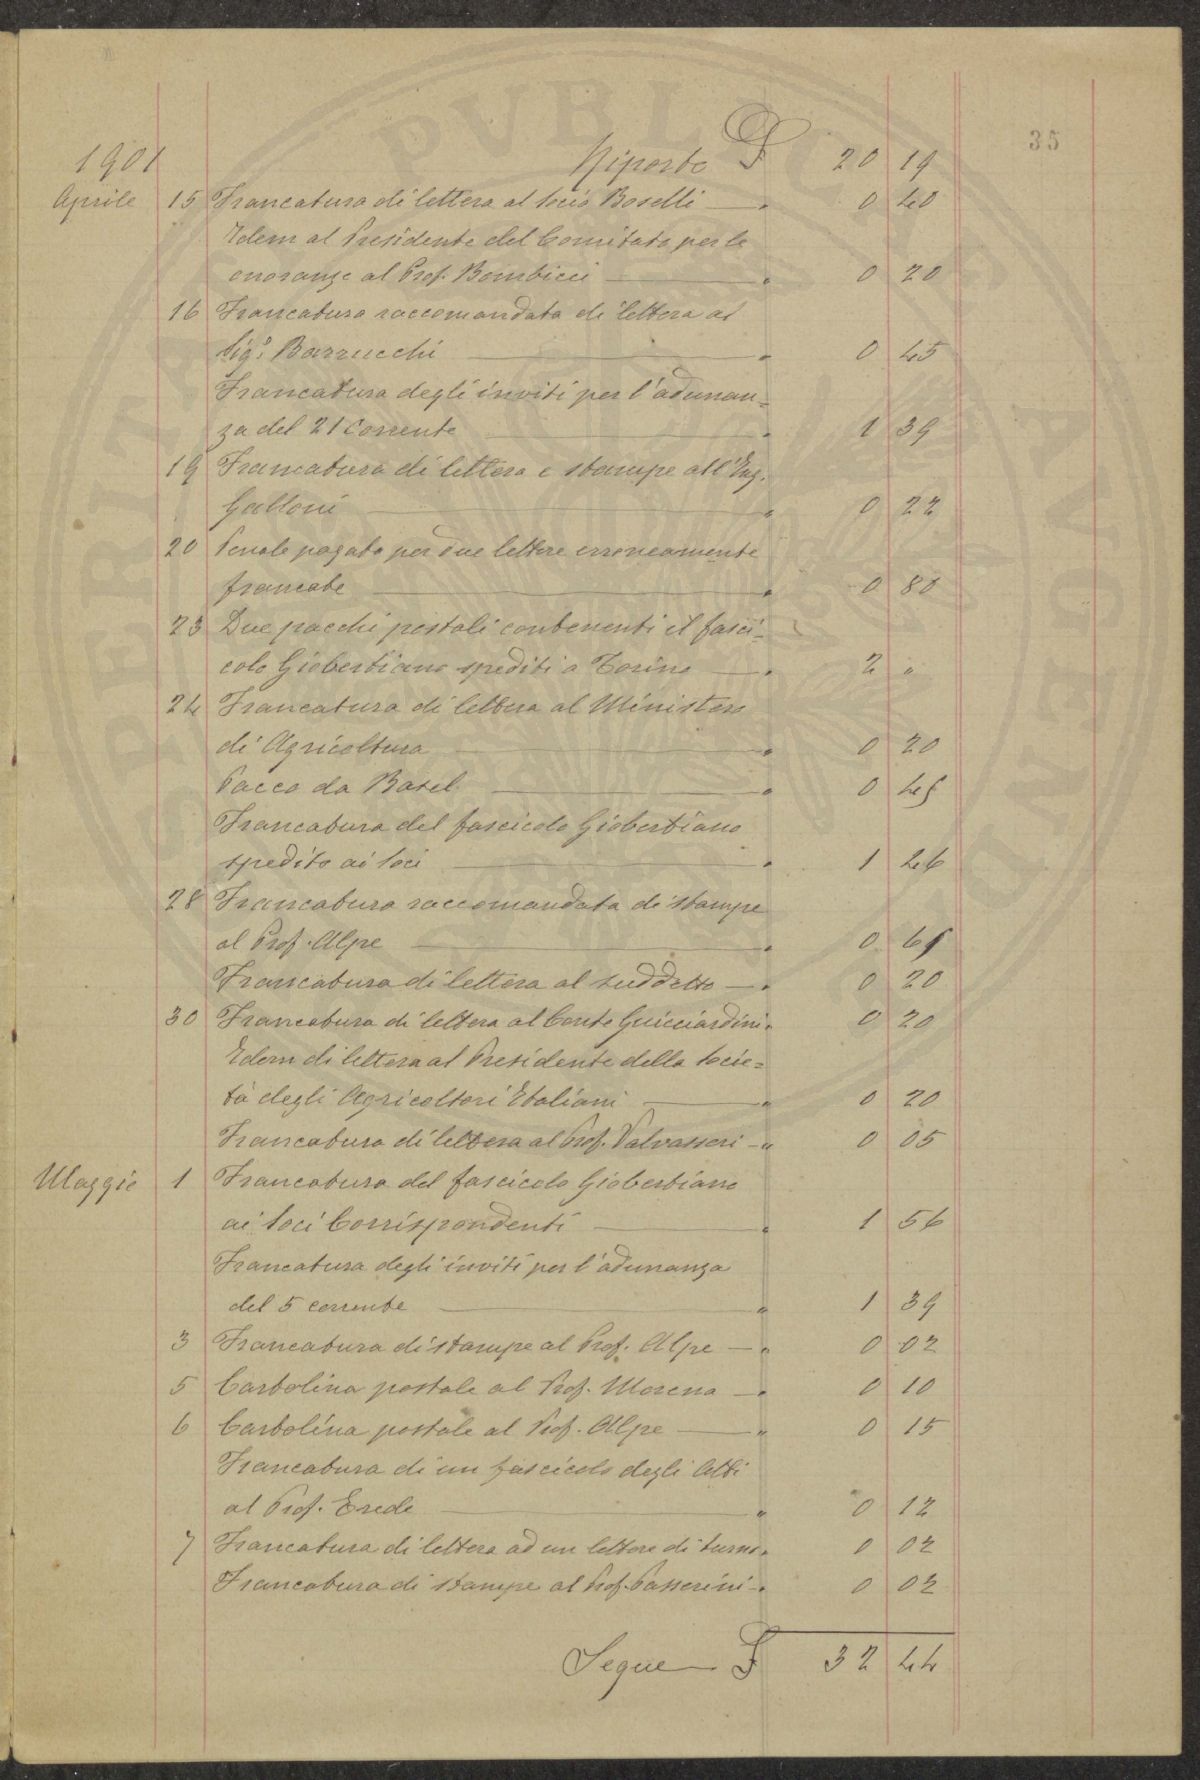 35
1901 Riporto £ 20 19
Aprile 15 Francatura di lettera al socio Boselli — " 0 40
Idem al Presidente del Comitato per le
onoranze al Prof. Bombicci — " 0 20
16 Francatura raccomandata di lettera al
Sigr. Barrucchi — " 0 45
Francatura degli inviti per l'adunan=
za del 21 Corrente — " 1 39
19 Francatura di lettera e stampe all'Ing.
Galloni — " 0 22
20 Penale pagata per due lettere erroneamente
francate — " 0 80
23 Due pacchi postali contenenti il fasci=
colo Giobertiano spediti a Torino — " 2 "
24 Francatura di lettera al Ministero
di Agricoltura — " 0 20
Pacco da Basel — " 0 45
Francatura del fascicolo Giobertiano
spedito ai soci — " 1 46
28 Francatura raccomandata di stampe
al Prof. Alpe — " 0 61
Francatura di lettera al suddetto — " 0 20
30 Francatura di lettera al Conte Guicciardini " 0 20
Idem di lettera al Presidente della Socie=
tà degli Agricoltori Italiani — " 0 20
Francatura di lettera al Prof. Valvassori — " 0 05
Maggio 1 Francatura del fascicolo Giobertiano
ai soci Corrispondenti — " 1 56
Francatura degli inviti per l'adunanza
del 5 corrente — " 1 39
3 Francatura di stampe al Prof. Alpe — " 0 02
5 Cartolina postale al Prof. Morena — " 0 10
6 Cartolina postale al Prof. Alpe — " 0 15
Francatura di un fascicolo degli Atti
al Prof. Erede — " 0 12
7 Francatura di lettera ad un lettore di turno " 0 02
Francatura di stampe al Prof. Passerini — " 0 02
Segue £ 32 44